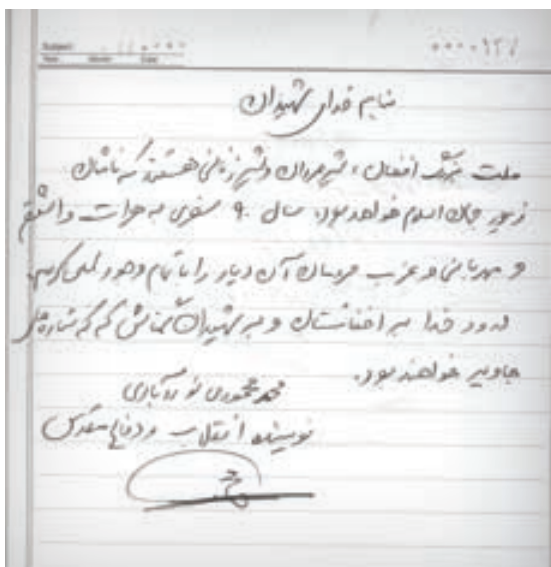 Subject:
Year: Month: Date:
بنام خدای شهیدان
ملت بزرگ افغان، شیرمردان و شیرزنانی هستند که نامشان
زیور جهان اسلام خواهد بود. سال ۹۰ سفری به هرات داشتم
و مهربانی و غربت مردمان آن دیار را با تمام وجود لمس کردم.
درود خدا بر افغانستان و بر شهیدان گمنامش که ستاره‌های
جاوید خواهند بود.
محمد محمودی نورآبادی
نویسنده انقلاب و دفاع مقدس